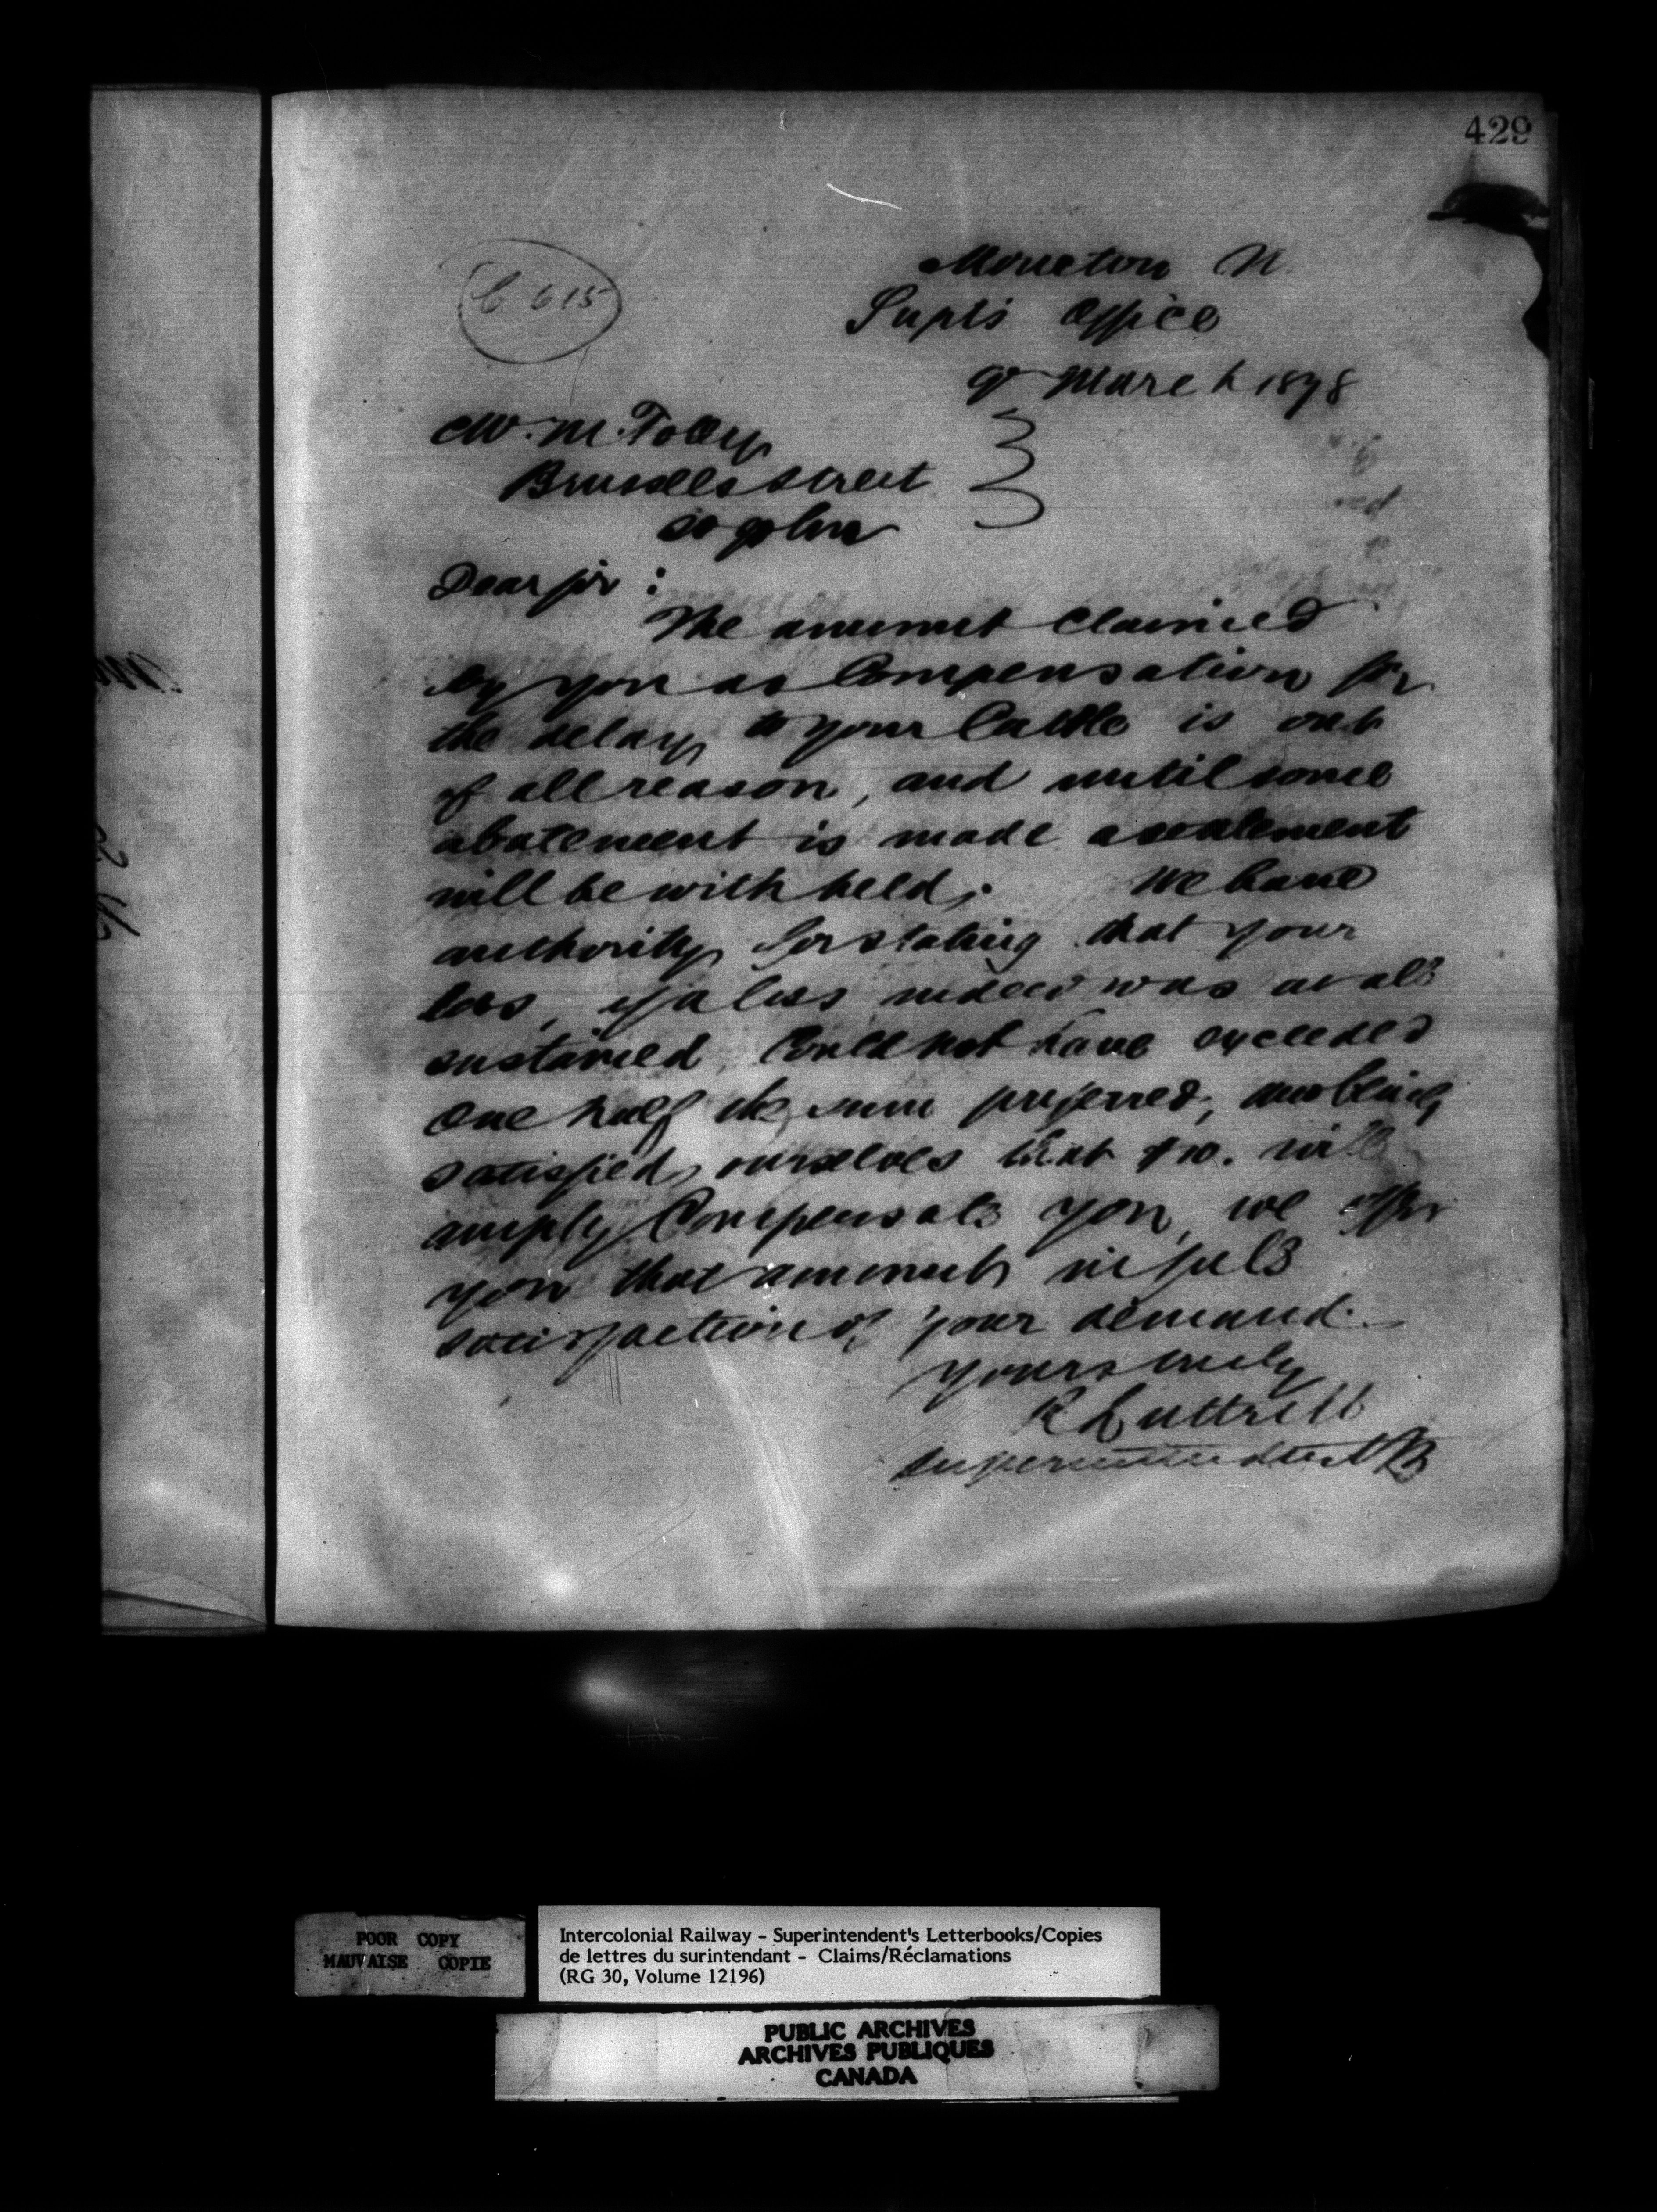 429
C 615
Moncton N.
Supts Office
9 March 1878
Brussels Street
St John
Dear Sir :
The amount claimed
by you as Compensation for
the delay to your Cattle is out
of all reason, and until some
abatement is made a settlement
will be withheld. We have
authority for stating that your
loss, if a loss indeed was at all
sustained, Could not have exceeded
One half the sum preferred, and being
satisfied ourselves that $10. will
amply Compensate you, we offer
you that amount in full
satisfaction of your demand.
Yours truly
R Luttrell
Superintendent
POOR COPY
MAUVAISE COPIE
Intercolonial Railway - Superintendent's Letterbooks/Copies
de lettres du surintendant - Claims/Réclamations
(RG 30, Volume 12196)
PUBLIC ARCHIVES
ARCHIVES PUBLIQUES
CANADA